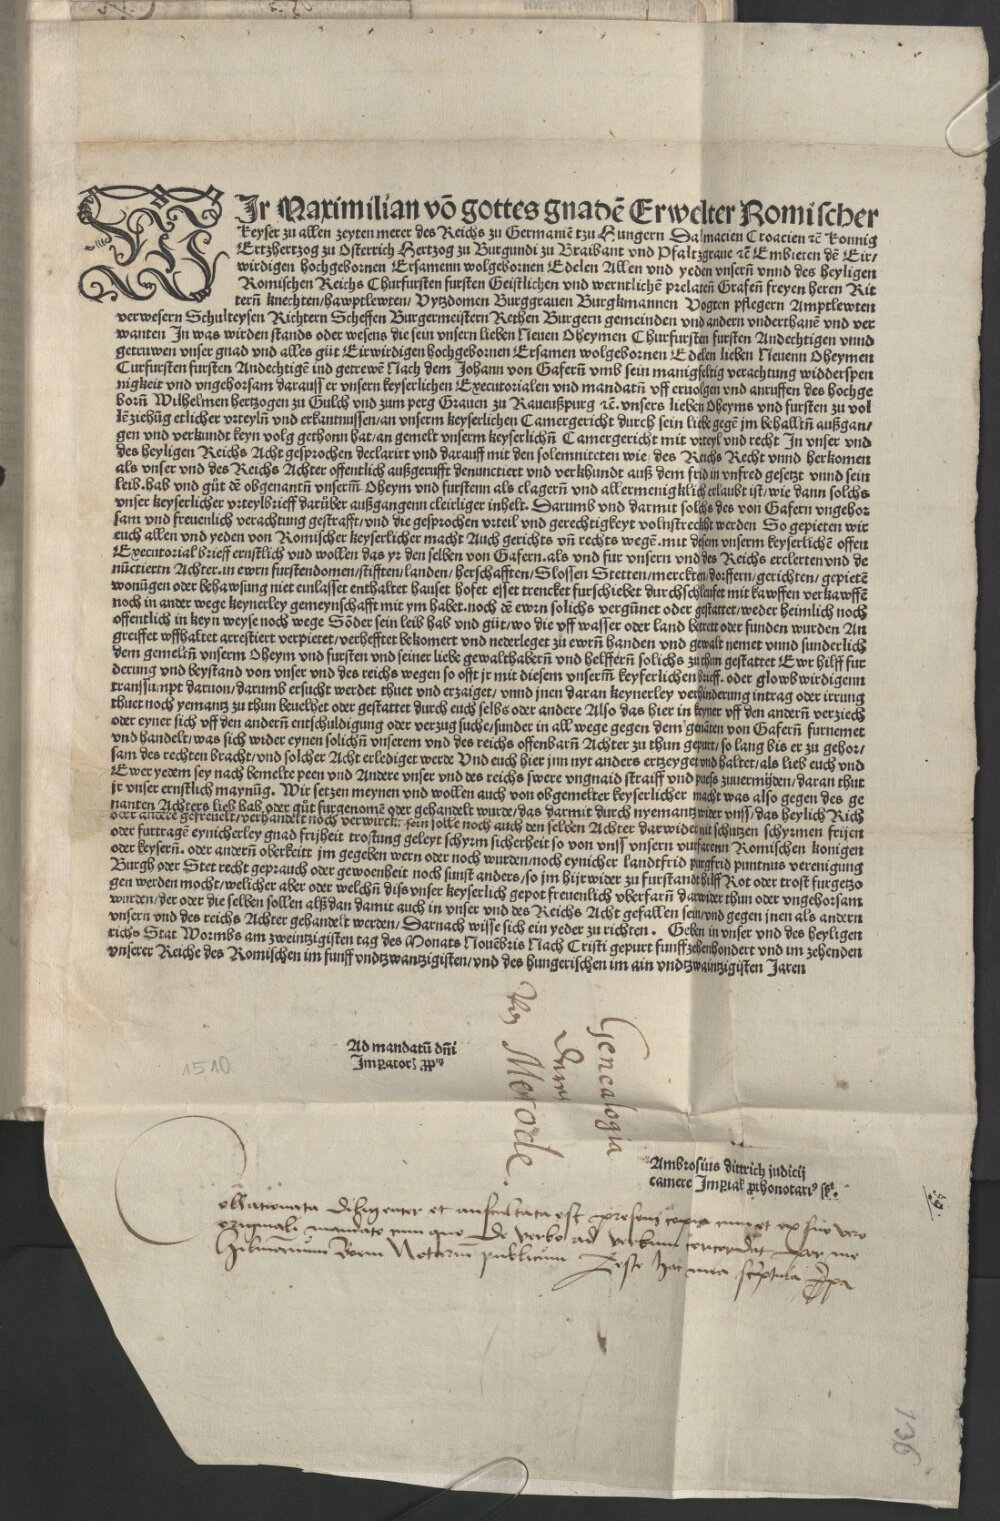 WIr Maximilian võ gottes gnadẽ Erwelter Romischer
Keyser zu allen zeyten merer des Reichs zu Germaniẽ tzu Hungern Dalmacien Croacien ꝛc̃ Konnig
Ertzhertzog zu Osterrich Hertzog zu Burgundi zu Braibant vnd Psaltzgraue ꝛc̃ Embieten dẽ Eir/
wirdigen hochgebornen Ersamenn wolgebornen Edelen Allen vnd yeden vnsern̄ vnnd des heyligen
Romischen Reichs Churfursten fursten Geistlichen vnd werntlichẽ prelaten̄ Grafen̄ freyen heren Rit
tern̄ knechten/hawptlewten/ Vytzdomen Burggrauen Burgkmannen Vogten pflegern Amptlewten
verwesern Schulteysen Richtern Scheffen Burgermeistern Rethen Burgern gemeinden vnd andern vnderthanẽ vnd ver
wanten In was wirden stands oder wesens die sein vnsern lieben Neuen Oheymen Churfursten fursten Andechtigen vnnd
getruwen vnser gnad vnd alles güt Eirwirdigen hochgebornen Ersamen wolgebornen Edelen lieben Neuenn Oheymen
Curfursten fursten Andechtigẽ ind getrewẽ Nach dem Johann von Gafern̄ vmb sein manigfeltig verachtung widderspen
nigkeit vnd vngehorsam darauss er vnsern keyserlichen Executorialen vnd mandatn̄ vff eruolgen vnd anruffen des hochge
born̄ Wilhelmen hertzogen zu Gulch vnd zum perg Grauen zu Raueußpurg ꝛc̃. vnsers lieben Oheyms vnd fursten zu vol
lẽziehūg etlicher vrteyln̄ vnd erkantnussen/an vnserm keyserlichen Camergericht durch sein liebe gegẽ jm behallltn̄ außgan/
gen vnd verkundt keyn volg gethonn hat/an gemelt vnserm keyserlichn̄ Camergericht mit vrteyl vnd recht In vnser vnd
des heyligen Reichs Acht gesprochen declarirt vnd darauff mit den solemniteten wie des Reichs Recht vnnd herkomen
als vnser vnd des Reichs Achter offentlich außgerufft denunctiert vnd verkhundt auß dem frid in vnfred gesetzt vnnd sein
leib. hab vnd güt dẽ obgenantn̄ vnserm̄ Oheym vnd furstenn als clagern̄ vnd allermenigklich erlaubt ist/wie dann solchs
vnser keyserlicher vrteylbrieff darüber außgangenn cleirliger inhelt. Darumb vnd darmit solchs des von Gafern vngehor
sam vnd freuenlich verachtung gestrafft/vnd die gesprochen vrteil vnd gerechtigkeyt volnstreckht werden So gepieten wir
euch allen vnd yeden von Romischer keyserlicher macht Auch gerichts vn̄ rechts wegẽ. mit disem vnserm keyserlichẽ offen
Executorial brieff ernstlich vnd wollen das yr den selben von Gafern. als vnd fur vnsern vnd des Reichs erclerten vnd de
nūctiertn Achter. in ewrn furstendomen/stifften/landen/herschafften/Slossen Stetten/merckten/dorffern/gerichten/gepietẽ
wonūgen oder behawsung niet einlasset enthaltet hauset hofet esset trencket furschiebet durchschleufet mit kawffen verkawffẽ
noch in ander wege keynerley gemeynschafft mit ym habet. noch dẽ ewrn solichs vergūnet oder gestattet/weder heimlich noch
offentlich in keyn weyse noch wege Sõder sein leib hab vnd güt/wo die vff wasser oder land betrett oder funden wurden An
greiffet wffhaltet arrestiert verpietet/verhefftet bekomert vnd nederleget zu ewrn̄ handen vnd gewalt nemet vnnd sunderlich
dem gemeltn̄ vnserm Oheym vnd fursten vnd seiner liebe gewalthabern̄ vnd helffern̄ solichs zu thun gestattet Ewr hilff fur
derung vnd beystand von vnser vnd des reichs wegen so offt jr mit diesem vnserm̄ keyserlichen brieff. oder glowbwirdigenn
transsumpt daruon/darumb ersucht werdet thuet vnd erzaiget/ vnnd jnen daran keynerley verhinderung intrag oder irrung
thuet noch yemantz zu thun beuelhet oder gestattet durch euch selbs oder andere Also das hier in keyner vff den andern̄ verziech
oder eyner sich vff den andern̄ entschuldigung oder verzug suche/sunder in all wege gegen dem genātten von Gafern̄ furnemet
vnd handelt/was sich wider eynen solichn̄ vnserem vnd des reichs offenbarn̄ Achter zu thun gepurt/so lang bis er zu gehor/
sam des rechten bracht/vnd solcher Acht erlediget werde Vnd euch hier jnn nyt anders ertzeyget vnd haltet/als lieb euch vnd
Ewer yedem sey nach bemelte peen vnd Andere vnser vnd des reichs swere vngnaid straiff vnd puess zuuermÿden/daran thut
jr vnser ernstlich maynūg. Wir setzen meynen vnd wollen auch von obgemelter keyserlicher macht was also gegen des ge
nanten Achters lieb hab oder gūt furgenomẽ oder gehandelt wurde/das darmit durch nyemantz wider vnss/das heylich Rich
oder andere gefreuelt/verhandelt noch verwirckt sein solle noch auch den selben Achter darwider nit schutzen schyrmen frijen
oder furtragẽ eynicherley gnad frijheit trostung geleyt schyrm sicherheit so von vnss vnsern vurfarenn Romischen konigen
oder keysern̄. oder andern̄ oberkeitt jm gegeben wern oder noch wurden/noch eynicher landtfrid purgfrid puntnus vereinigung
Burgh oder Stet recht geprauch oder gewoenheit noch sunst anders/so jm hijrwider zu furstandt hilff Rot oder trost furgetzo
gen werden mocht/welicher aber oder welchn̄ diss vnser keyserlich gepot freuenlich vberfarn̄ darwider thun oder vngehorsam
wurden/der oder die selben sollen alßdan damit auch in vnser vnd des Reichs Acht gefallen sein/vnd gegen jnen als andern
vnsern vnd des reichs Achter gehandelt werden/Darnach wisse sich ein yeder zu richten. Geben in vnser vnd des heyligen
richs Stat Wormbs am zweintzigisten tag des Monats Nouẽbris Nach Cristi gepurt funffzehenhondert vnd im zehenden
vnserer Reiche des Romischen im funff vndtzwantzigisten/vnd des hungerischen im ain vndtzwaintzigisten Jaren
Genealogia
Dni
Von Merode.
Ad mandatū dn̄i
Imꝑatorꝭ ꝓpꝰ
1510
Ambrosius dittrich judicij
camere Imꝑial ꝓthonotariꝰ sst.
Collationata diligenter et auscultata est presens copia cum et ex suo vero
originali mandato cum quo de verbo ad verbum concordat per me
notarium publicum Teste hac mea scriptura ꝓpa
136